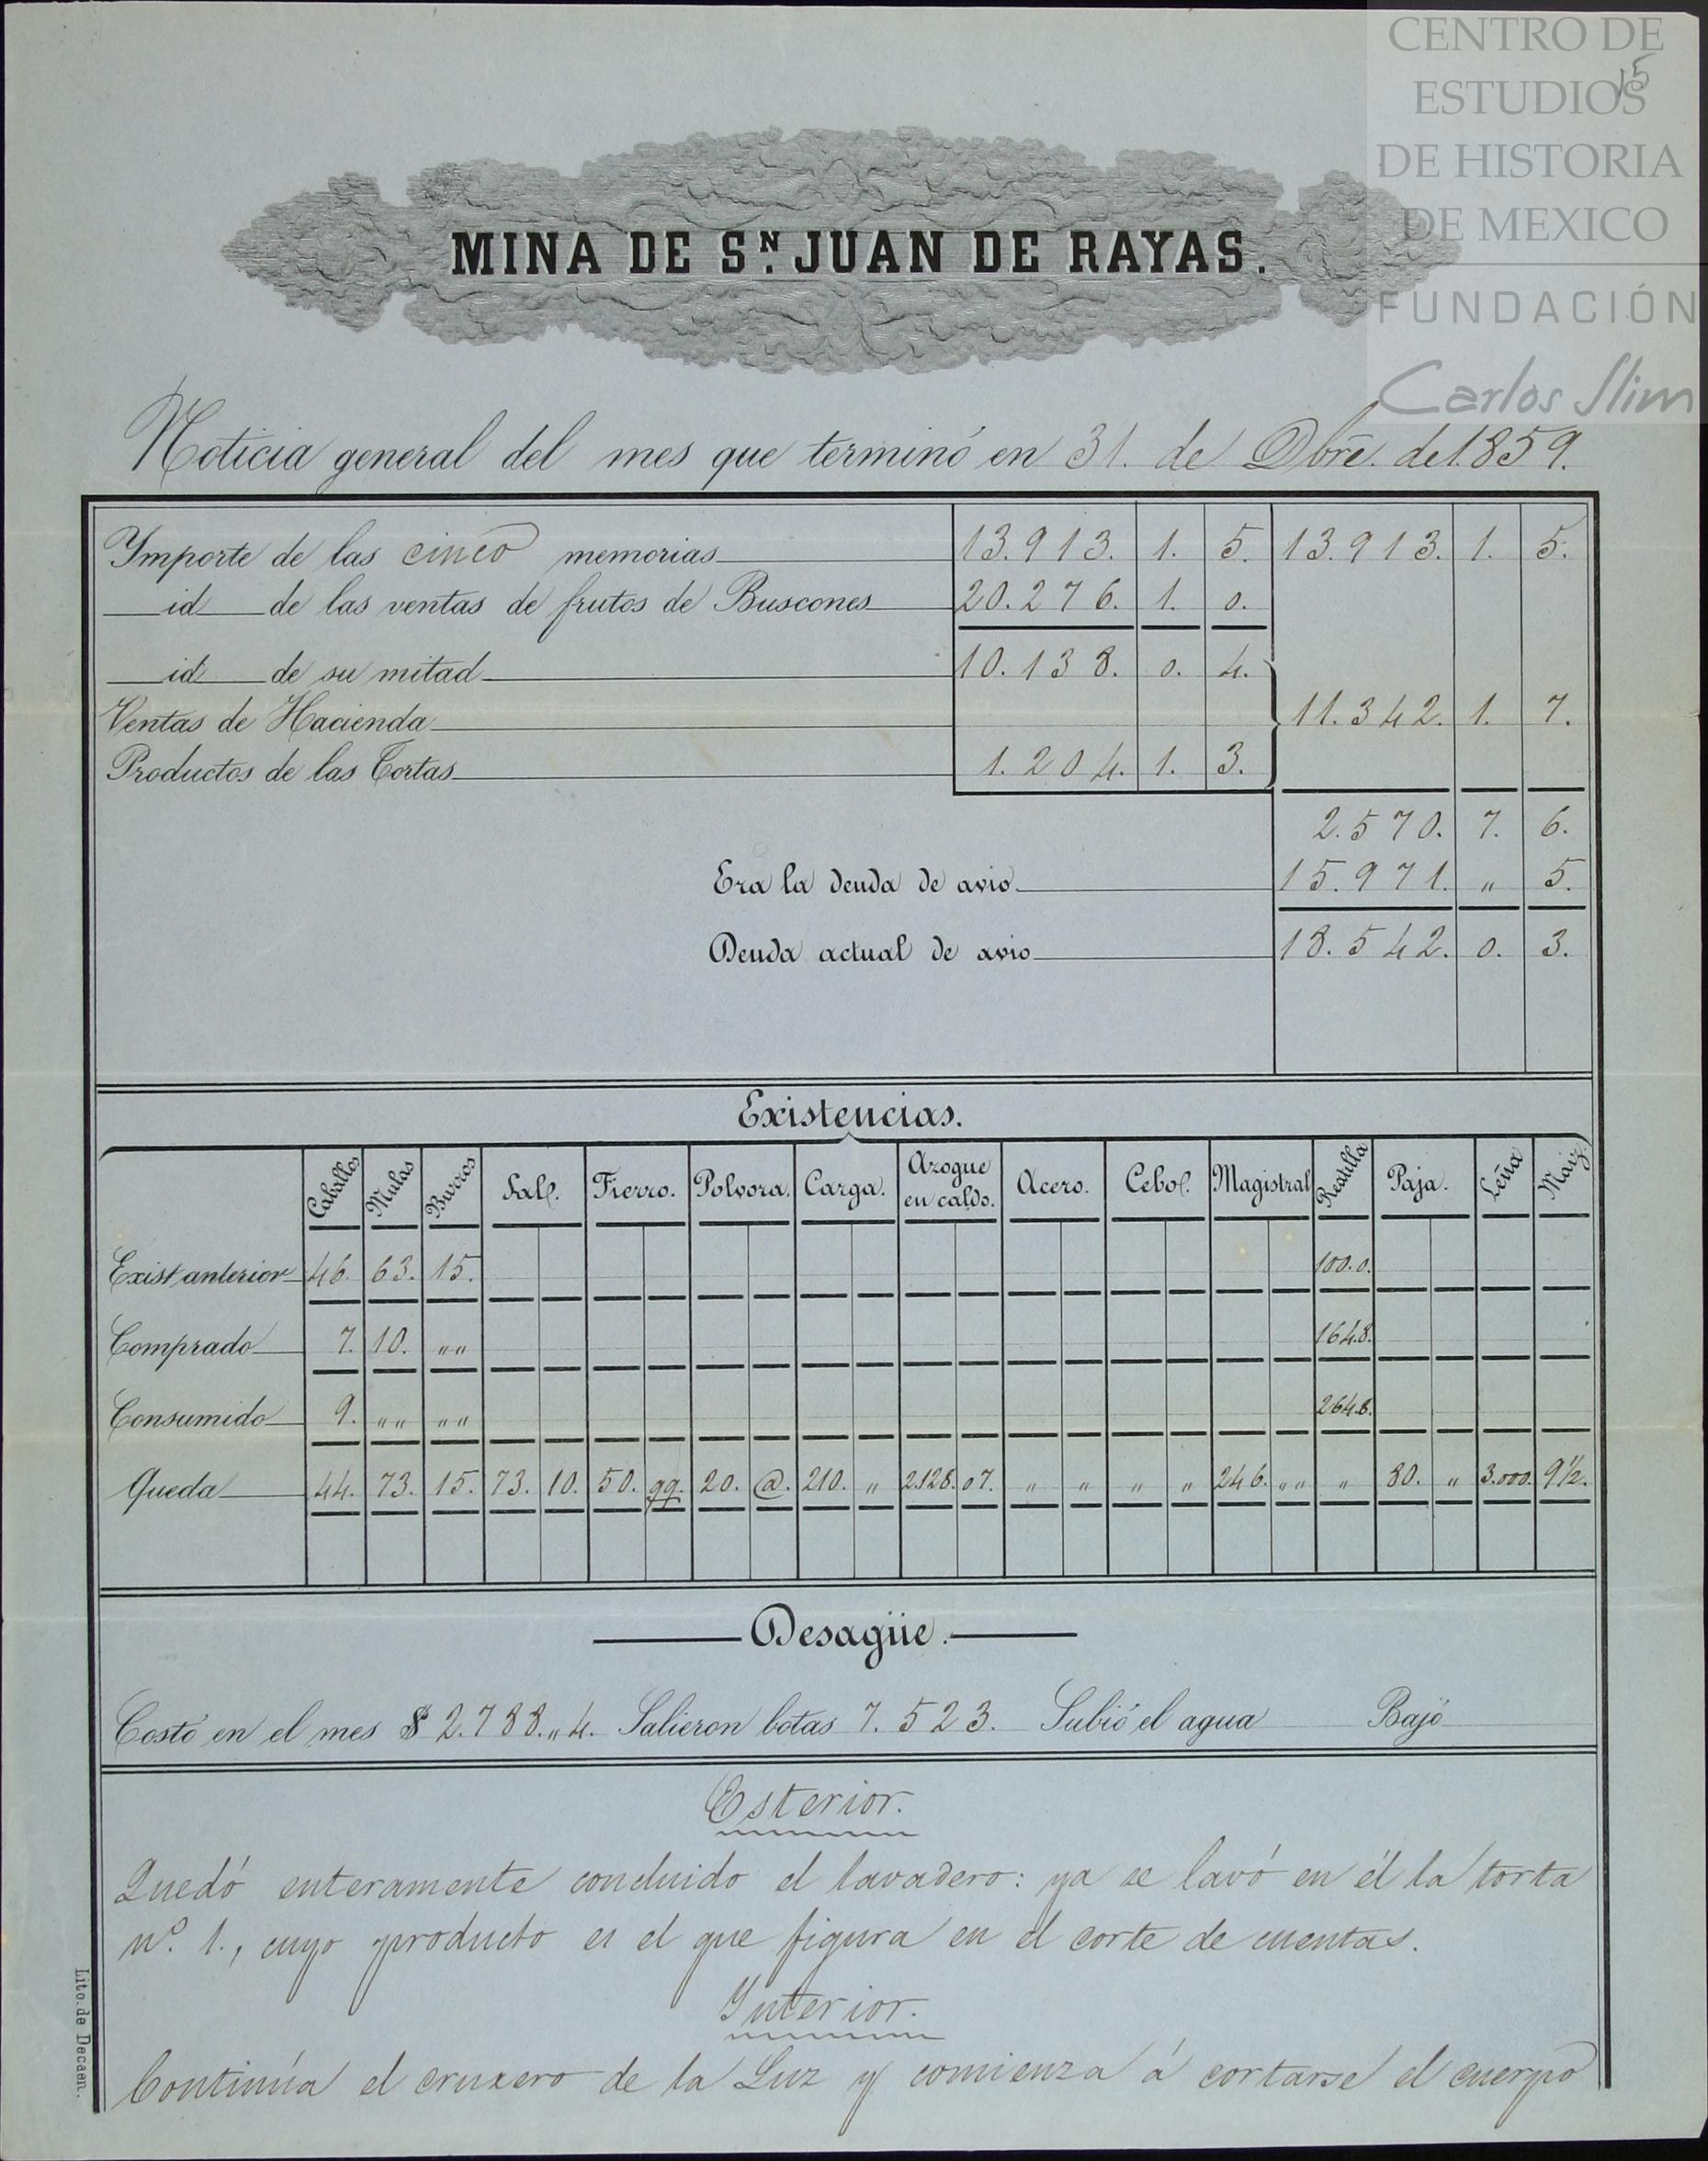 CENTRO DE
ESTUDIOS
DE HISTORIA
DE MEXICO
FUNDACIÓN
Carlos Slim
15
MINA DE S.N JUAN DE RAYAS.
Noticia general del mes que terminó en 31. de Dbre. de 1859.
Ymporte de las cinco memorias 13.913. 1. 5. 13.913. 1. 5.
id de las ventas de frutos de Buscones 20.276. 1. 0.
id de su mitad 10.138. 0. 4.
Ventas de Hacienda 11.342. 1. 7.
Productos de las Tortas 1.204. 1. 3.
2.570. 7. 6.
Era la deuda de avio 15.971. " 5.
Deuda actual de avio 18.542. 0. 3.
Existencias.
Caballos Mulas Burros Sal. Fierro. Polvora. Carga. Azogue en caldo. Acero. Cebo. Magistral Reatilla Paja. Leña Maiz.
Exist. anterior 46. 63. 15. 100.0.
Comprado 7. 10. "" 164.8.
Consumido 9. "" "" 264.8.
Queda 44. 73. 15. 73. 10. 50. qq. 20. @. 210. " 2.128. 07. " " " " 246. "" " 80. " 3.000. 9½.
Desagüe.
Costó en el mes $ 2.788. " 4. Salieron botas 7.523. Subió el agua Bajó
Esterior.
Quedó enteramente concluido el lavadero: ya se lavó en él la torta
nº. 1., cuyo producto es el que figura en el corte de cuentas.
Ynterior.
Continúa el cruzero de la Luz y comienza á cortarse el cuerpo
Lito. de Decaen.